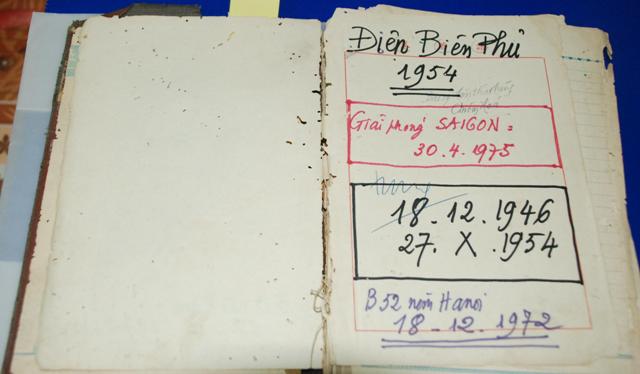 Điện Biên Phủ
1954
Giải phóng SAIGON:
30.4.1975
18.12.1946
27.X.1954
B52 ném Hanoi
18-12.1972